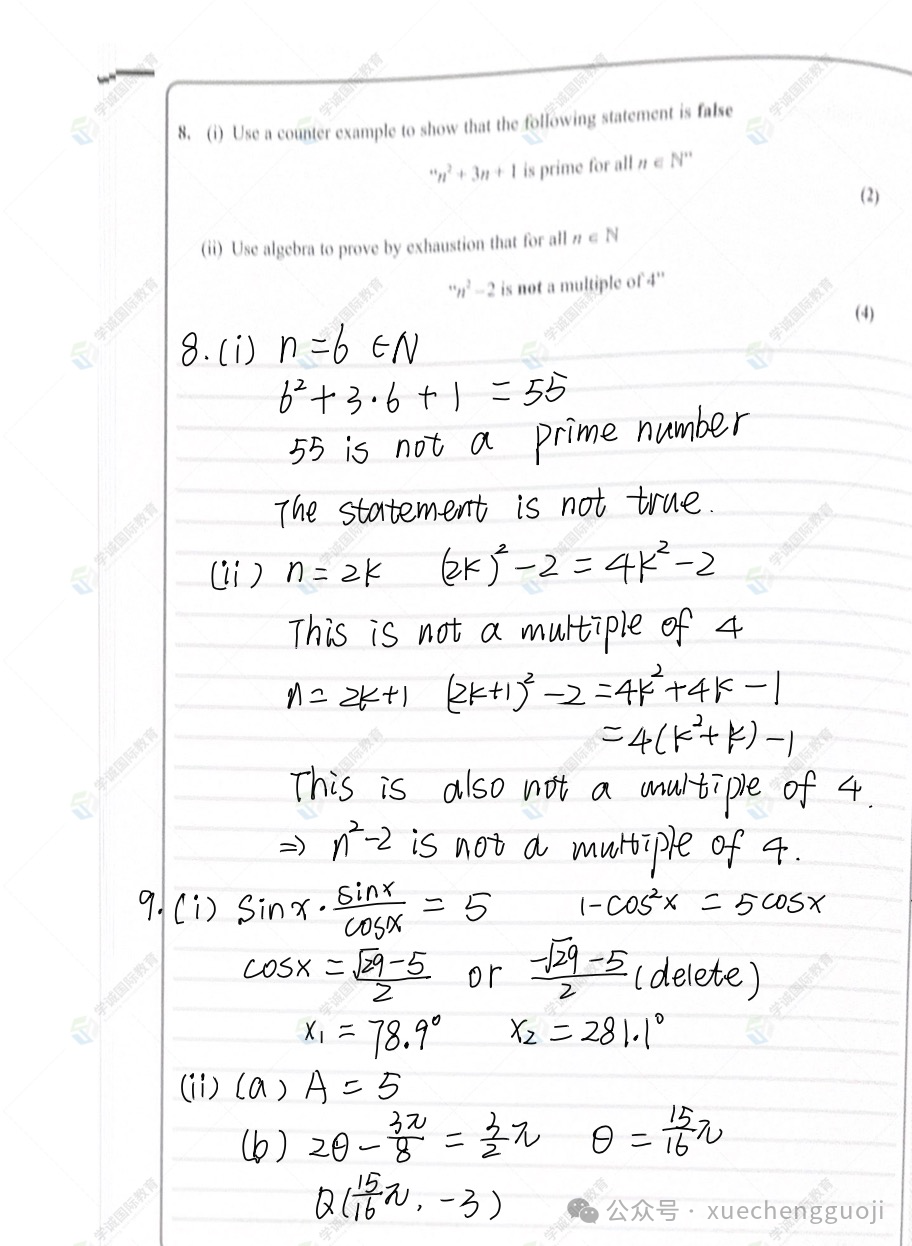 8. (i) Use a counter example to show that the following statement is false
"n² + 3n + 1 is prime for all n ∈ ℕ"
(2)
(ii) Use algebra to prove by exhaustion that for all n ∈ ℕ
"n² – 2 is not a multiple of 4"
(4)
8. (i) n = 6 ∈ N
6² + 3·6 + 1 = 55
55 is not a prime number
The statement is not true.
(ii) n = 2k (2k)² – 2 = 4k² – 2
This is not a multiple of 4
n = 2k+1 (2k+1)² – 2 = 4k² + 4k – 1
= 4(k² + k) – 1
This is also not a multiple of 4.
⇒ n² – 2 is not a multiple of 4.
9. (i) sin x · sin x / cos x = 5 1 – cos² x = 5 cos x
cos x = (√29 – 5)/2 or (–√29 – 5)/2 (delete)
x₁ = 78.9° x₂ = 281.1°
(ii) (a) A = 5
(b) 2θ – 3π/8 = 3/2 π θ = 15/16 π
Q(15/16 π, –3)
公众号 · xuechengguoji
学诚国际教育